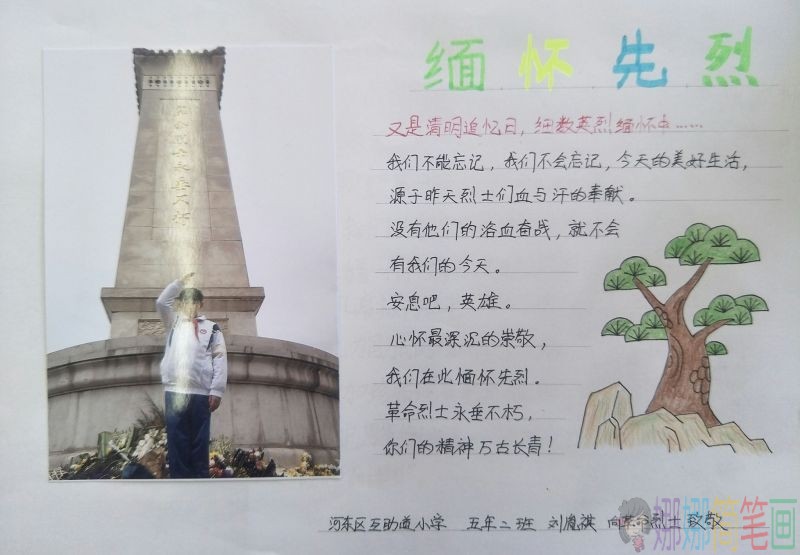 缅怀先烈
又是清明追忆日，细数英烈缅怀中……
我们不能忘记，我们不会忘记，今天的美好生活，
源于昨天烈士们血与汗的奉献。
没有他们的浴血奋战，就不会
有我们的今天。
安息吧，英雄。
心怀最深沉的崇敬，
我们在此缅怀先烈。
革命烈士永垂不朽，
你们的精神万古长青！
河东区互助道小学 五年二班 向革命烈士致敬
娜娜简笔画